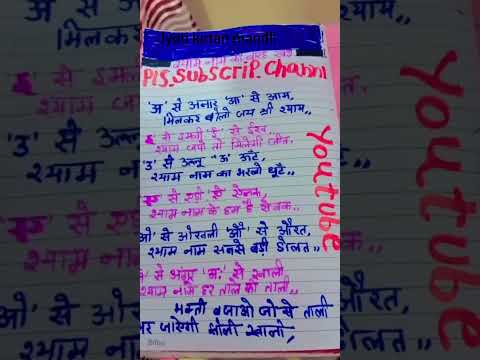 श्याम नाम की बारह खड़ी
PLS. SubScrip. Channl
'अ' से अनार 'आ' से आम,
मिलकर बोलो जय श्री श्याम,,
इ से इमली 'ई' से
श्याम जपो तो मिलेगी जीत,,
'उ' से उल्लू "ऊ" ऊँट,
श्याम नाम का भरलो घूँट,,
से एड़ी से ऐनक,
श्याम नाम के हम है सेवक,,
ओ' से ओखली 'औ' से औरत,
श्याम नाम सबसे बड़ी दौलत,,
से अंगूर 'अः' से खाली,
श्याम नाम हर ताले की ताली,,
बजाओ जो से ताली
जाएगी झोली खाली,
youtube